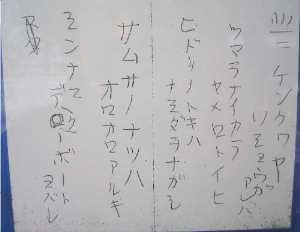 北ニケンクワヤ
ソショウガアレバ
ツマラナイカラ
ヤメロトイヒ
ヒドリノトキハ
ナミダヲナガシ
サムサノナツハ
オロオロアルキ
ミンナニ
デクノボート
ヨバレ